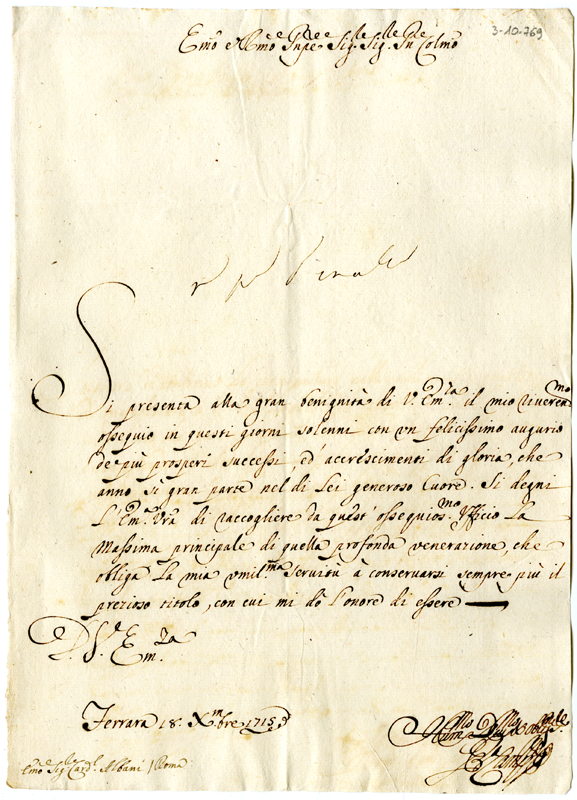 3-10-769
Emo e Rmo Inpe Sigr Sigr Pn Colmo
Si presenta alla gran benignità di V. Em.za il mio riveren.mo
ossequio in questi giorni solenni con un felicissimo augurio
de' più prosperi successi, ed' accrescimenti di gloria, che
anno sì gran parte nel di Lei generoso Cuore. Si degni
L'Em.a Vra di raccogliere da quest' ossequios.mo Uficio La
Massima principale di quella profonda venerazione, che
obliga La mia umil.ma servitù à conservarsi sempre più il
prezioso titolo, con cui mi dò l'onore di essere
D. V. Em.za
Ferrara 18 Xmbre 1715
Emo Sigr Card. Albani / Roma